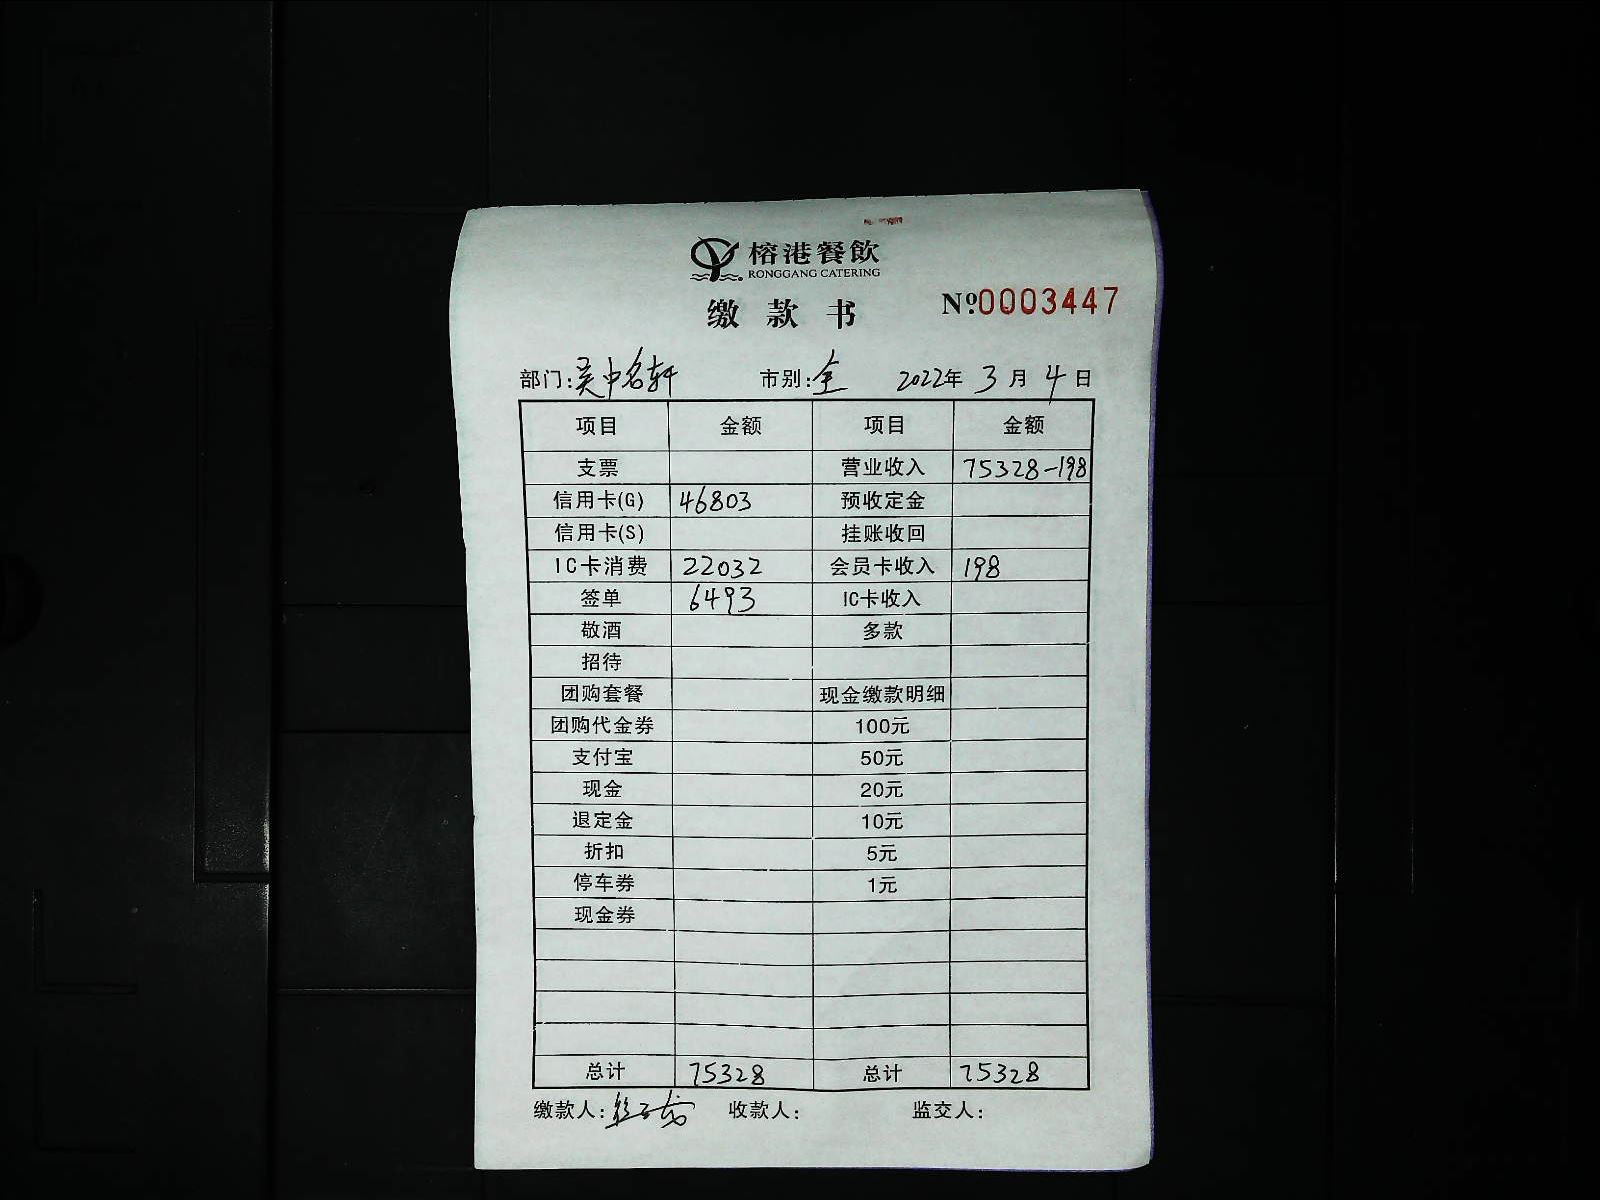 榕港餐飲
RONGGANG CATERING
缴款书 Nº0003447
部门:吴中名轩 市别:全 2022年3月4日
项目 金额 项目 金额
支票 营业收入 75328-198
信用卡(G) 46803 预收定金
信用卡(S) 挂账收回
IC卡消费 22032 会员卡收入 198
签单 6493 IC卡收入
敬酒 多款
招待
团购套餐 现金缴款明细
团购代金券 100元
支付宝 50元
现金 20元
退定金 10元
折扣 5元
停车券 1元
现金券
总计 75328 总计 75328
缴款人: 收款人: 监交人: